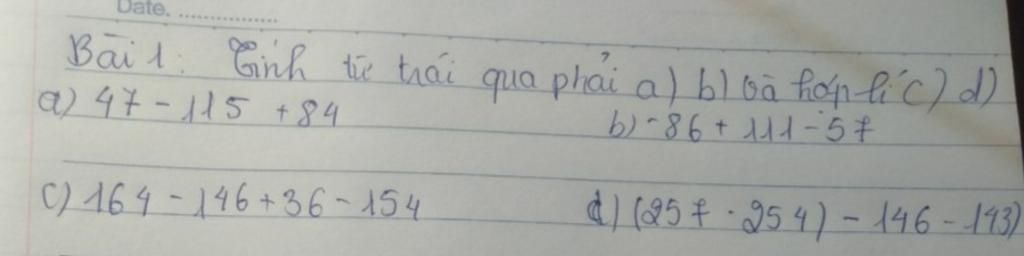 Date. ................
Bài 1: Tính từ trái qua phải a) b) và hợp lí c) d)
a) 47 - 115 + 84
b) -86 + 111 - 57
c) 164 - 146 + 36 - 154
d) (257 . 254) - 146 - 143)